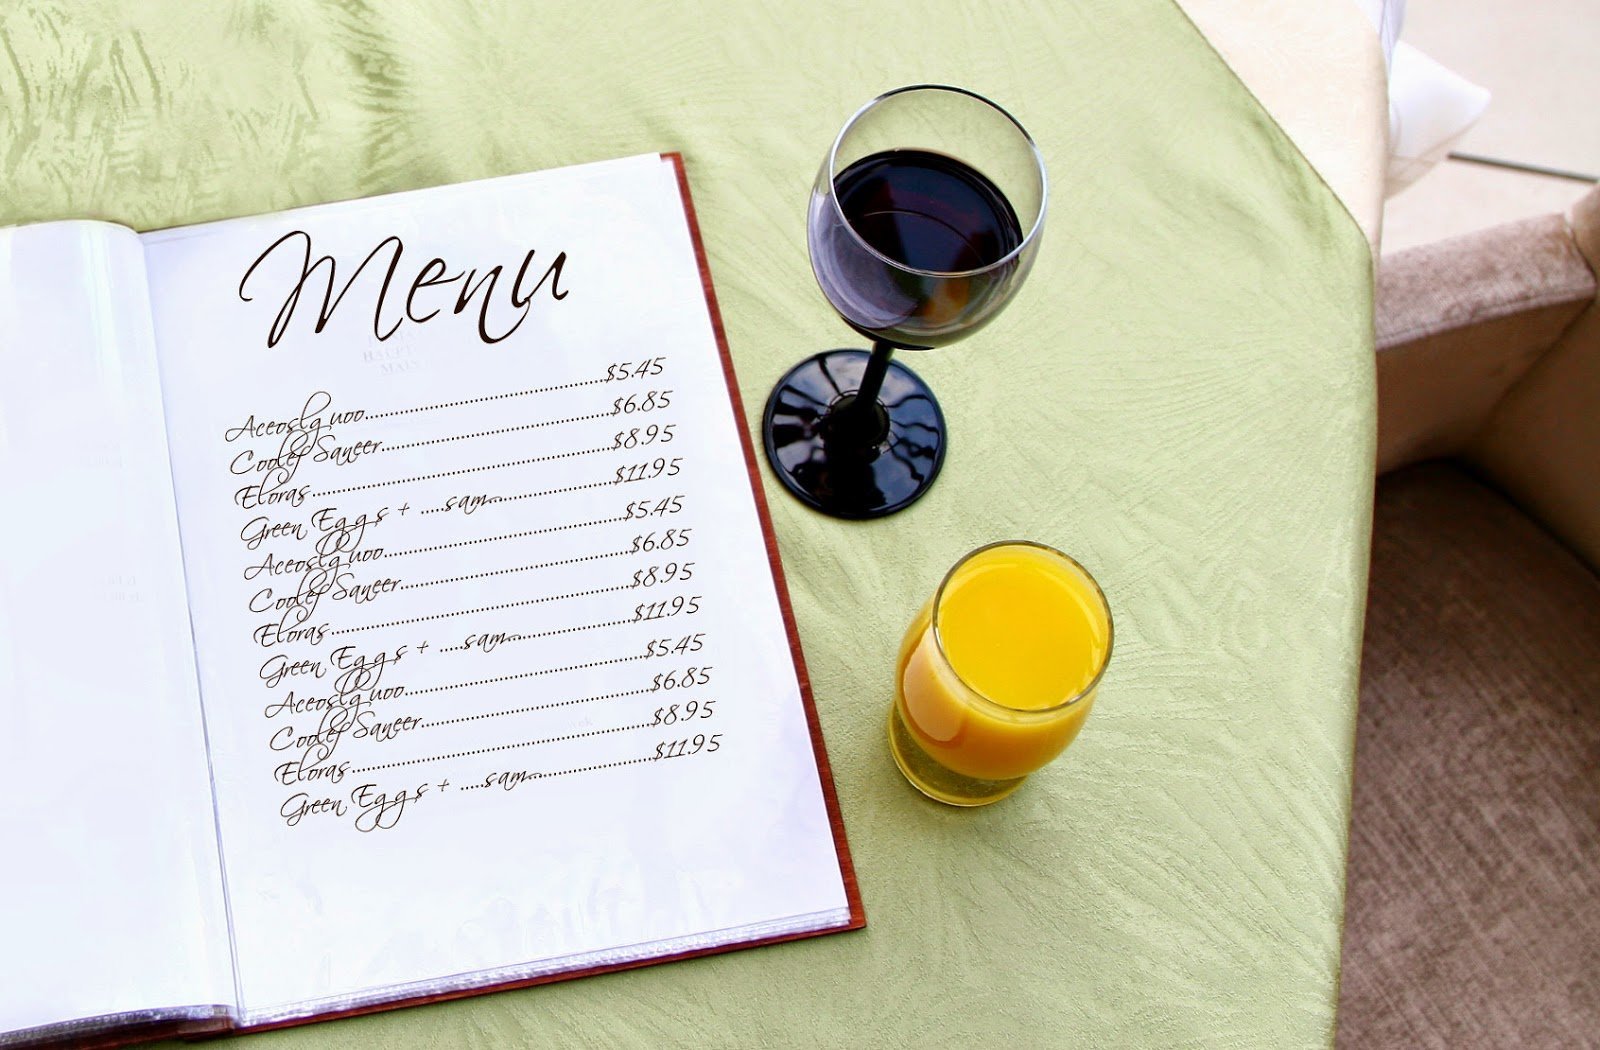 Menu
Aceoslquoo..............................................$5.45
Coolef Saneer..........................................$6.85
Eloras........................................................$8.95
Green Eggs + .....sam..............................$11.95
Aceoslquoo..............................................$5.45
Coolef Saneer..........................................$6.85
Eloras........................................................$8.95
Green Eggs + .....sam..............................$11.95
Aceoslquoo..............................................$5.45
Coolef Saneer..........................................$6.85
Eloras........................................................$8.95
Green Eggs + .....sam..............................$11.95